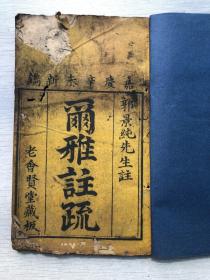 嘉慶辛未新鐫
郭景純先生註
爾雅註疏
老會賢堂藏板